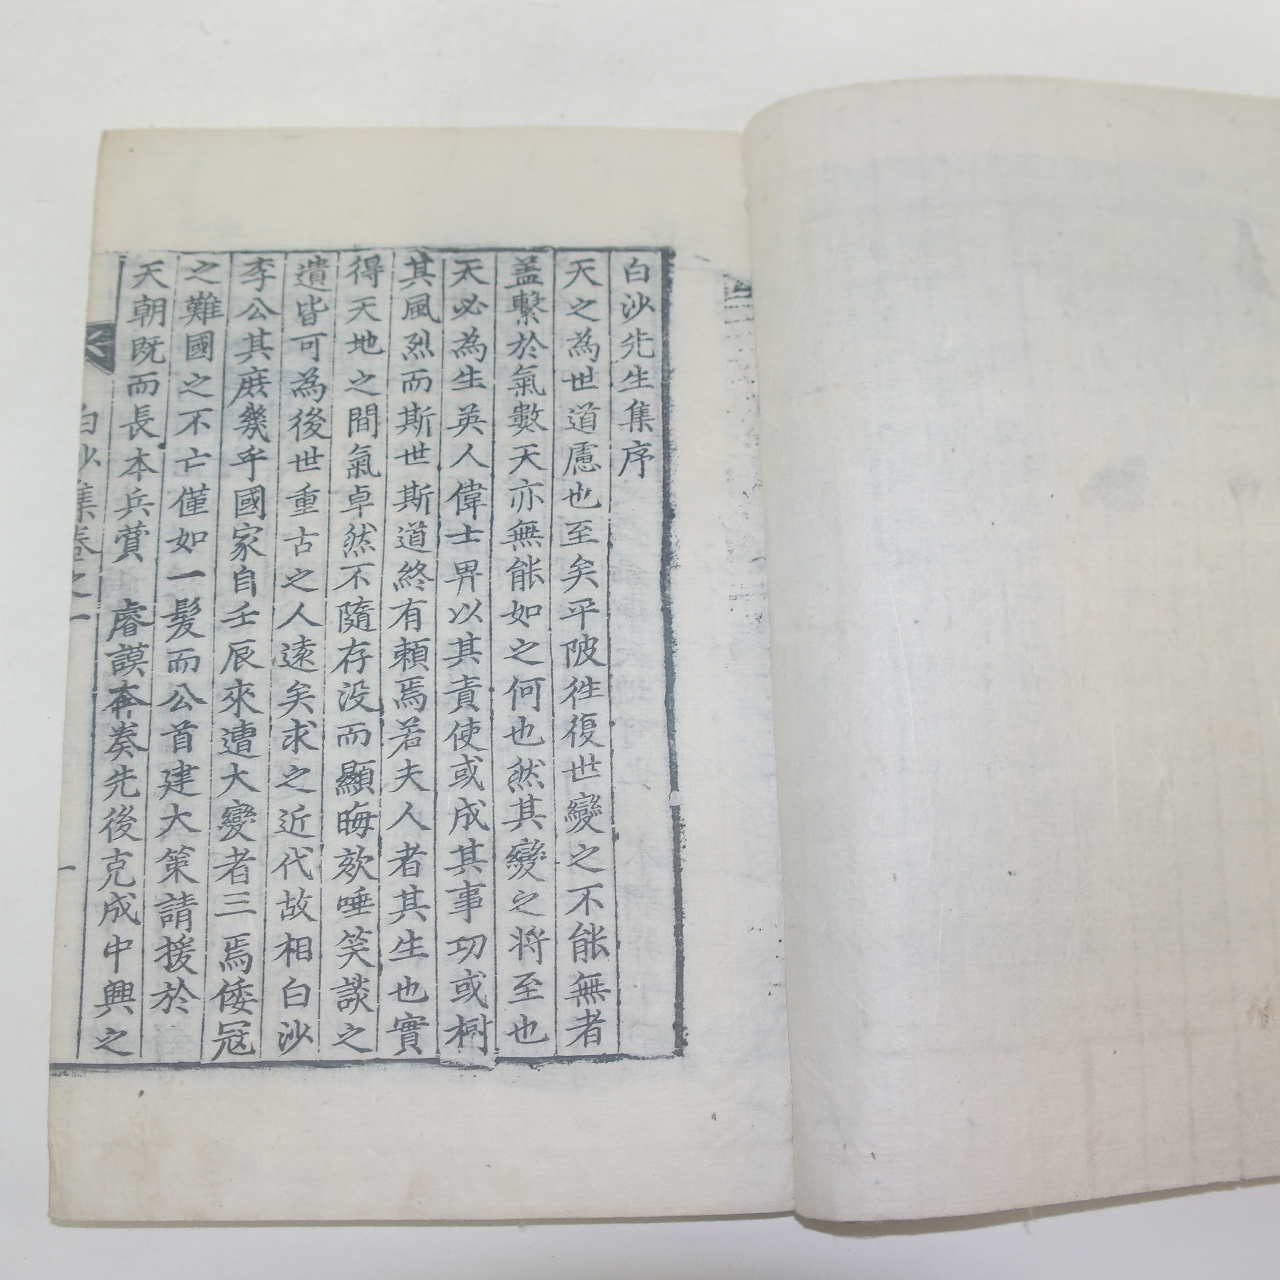 白沙先生集序
天之為世道慮也至矣平陂徃復世變之不能無者
盖繫於氣數天亦無能如之何也然其變之将至也
天必為生英人偉士畀以其責使或成其事功或樹
其風烈而斯世斯道終有頼焉若夫人者其生也實
得天地之間氣卓然不隨存没而顯晦欬唾笑談之
遺皆可為後世重古之人遠矣求之近代故相白沙
李公其庻幾乎國家自壬辰來遭大變者三焉倭冦
之難國之不亡僅如一髮而公首建大策請援於
天朝既而長本兵賛 睿謨奔奏先後克成中興之
白沙集卷之一
一